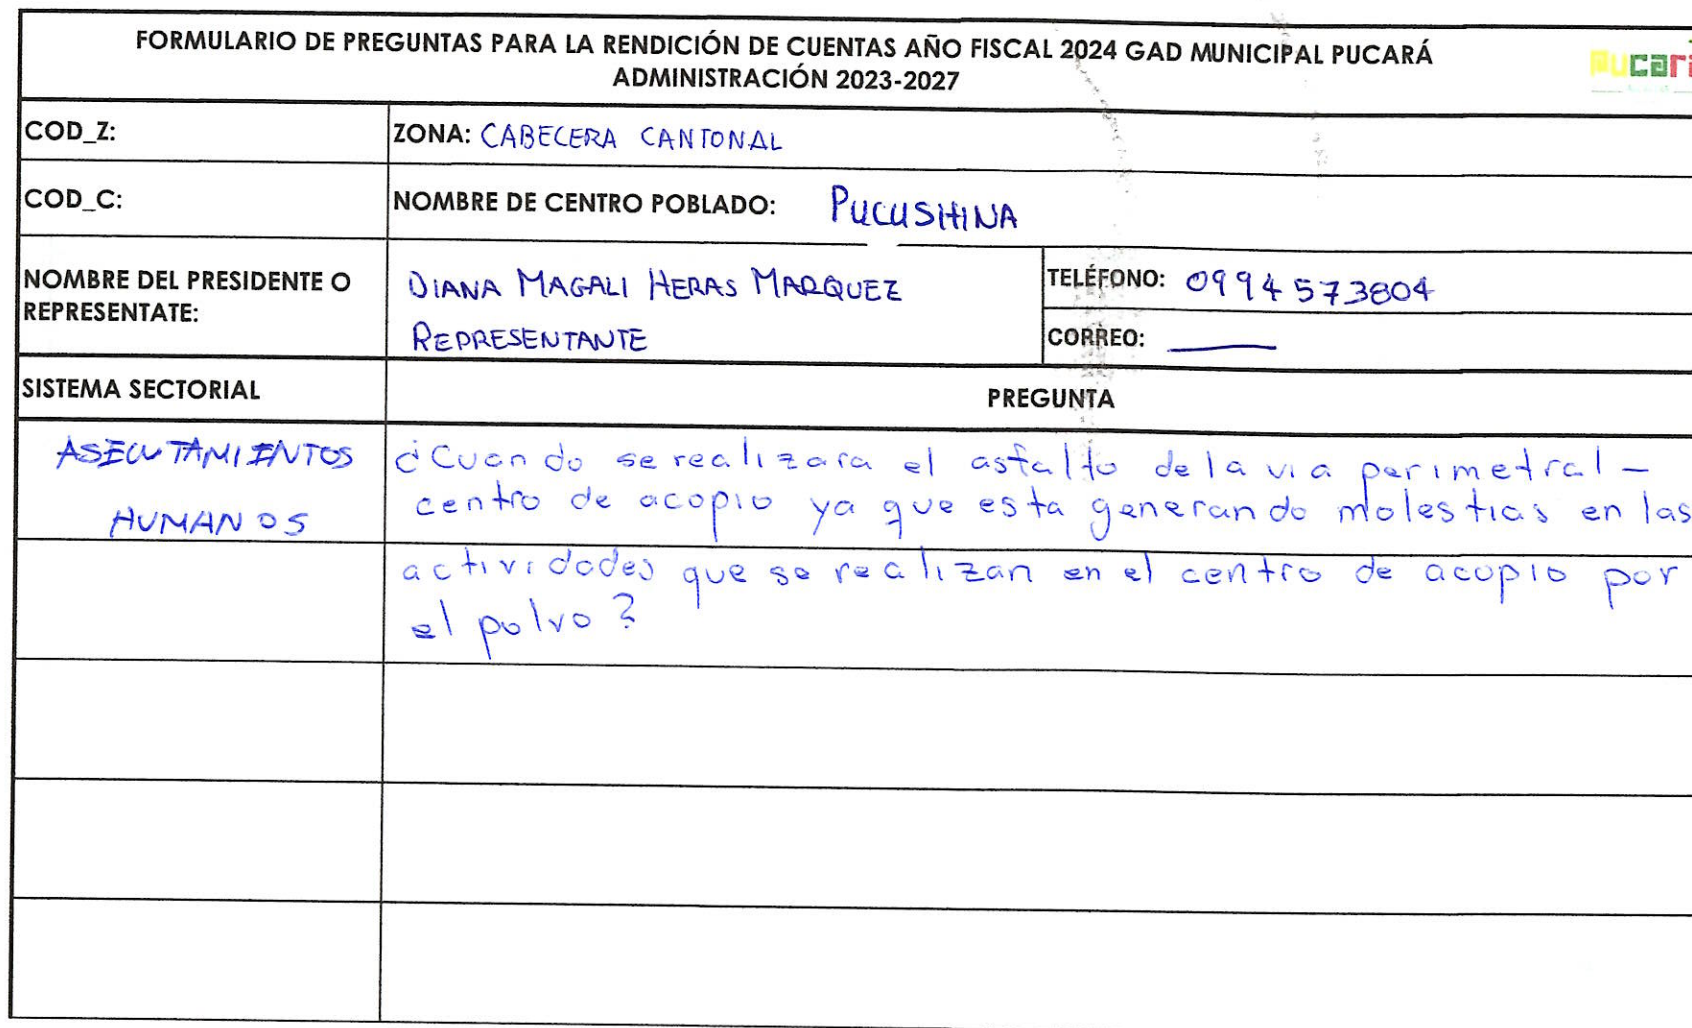 FORMULARIO DE PREGUNTAS PARA LA RENDICIÓN DE CUENTAS AÑO FISCAL 2024 GAD MUNICIPAL PUCARÁ
ADMINISTRACIÓN 2023-2027
Pucar
COD_Z:
ZONA: CABECERA CANTONAL
COD_C:
NOMBRE DE CENTRO POBLADO: PUCUSHINA
NOMBRE DEL PRESIDENTE O
REPRESENTATE:
DIANA MAGALI HERAS MARQUEZ
REPRESENTANTE
TELÉFONO: 0994573804
CORREO:
SISTEMA SECTORIAL
PREGUNTA
ASENTAMIENTOS
HUMANOS
¿Cuando se realizara el asfalto de la via perimetral –
centro de acopio ya que esta generando molestias en las
actividades que se realizan en el centro de acopio por
el polvo?